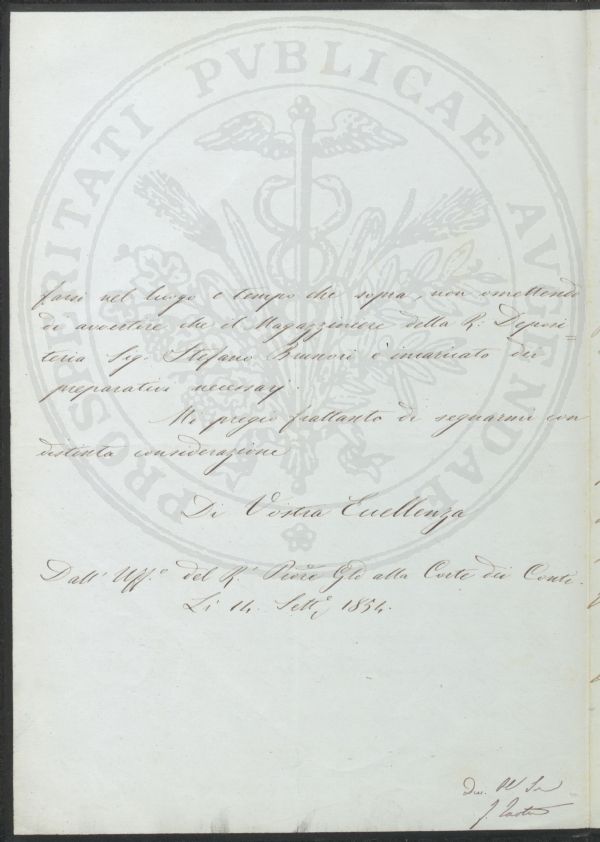 PROSPERITATI PVBLICAE AVGENDAE
farsi nel luogo e tempo che sopra, non omettendo
di avvertire che il Magazziniere della R. Deposi=
teria Sig. Stefano Brunori è incaricato dei
preparativi necessarj.
Mi pregio frattanto di segnarmi con
distinta considerazione
Di Vostra Eccellenza
Dall' Uff.o del R. Proc.re Gle alla Corte dei Conti.
Li 14. Sett.e 1854.